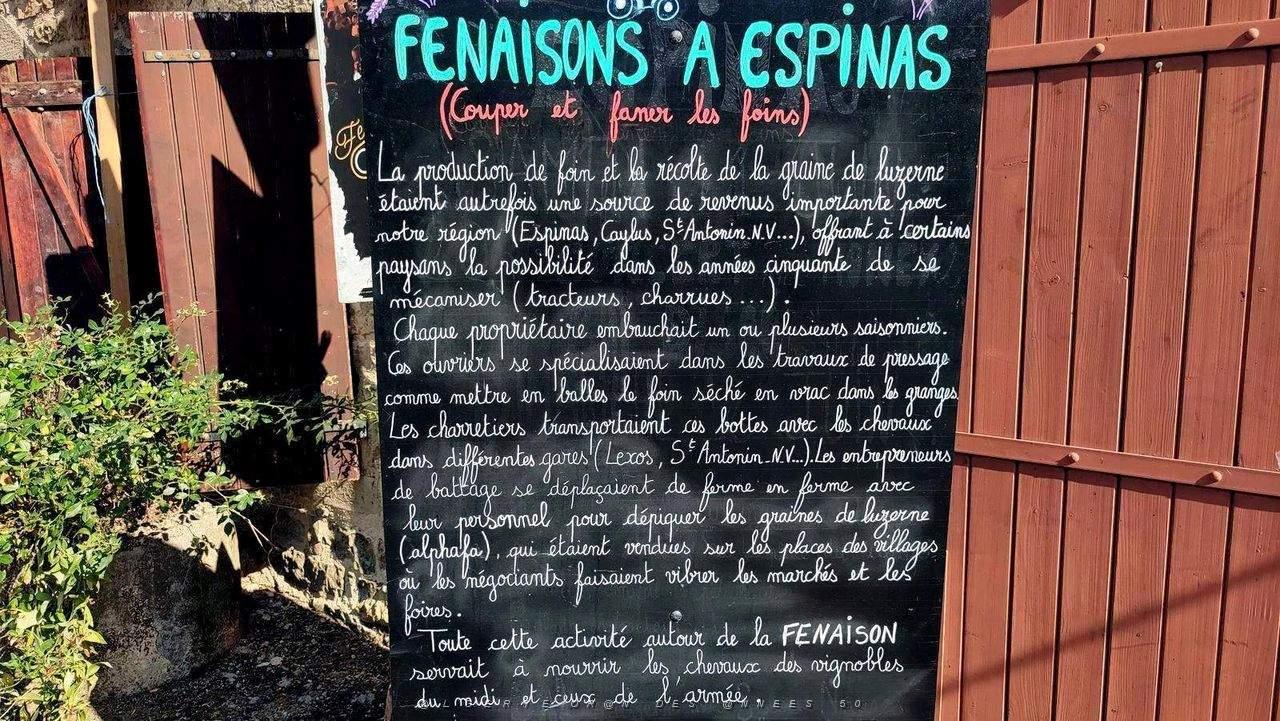 FENAISONS A ESPINAS
(Couper et faner les foins)
La production de foin et la récolte de la graine de luzerne
étaient autrefois une source de revenus importante pour
notre région (Espinas, Caylus, St Antonin.N.V...), offrant à certains
paysans la possibilité dans les années cinquante de se
mécaniser (tracteurs, charrues ...).
Chaque propriétaire embauchait un ou plusieurs saisonniers.
Ces ouvriers se spécialisaient dans les travaux de pressage
comme mettre en balles le foin séché en vrac dans les granges.
Les charretiers transportaient ces bottes avec les chevaux
dans différentes gares (Lexos, St Antonin.N.V...). Les entrepreneurs
de battage se déplaçaient de ferme en ferme avec
leur personnel pour dépiquer les graines de luzerne
(alphafa), qui étaient vendues sur les places des villages
où les négociants faisaient vibrer les marchés et les
foires.
Toute cette activité autour de la FENAISON
servait à nourrir les chevaux des vignobles
du midi et ceux de l'armée.
DES @NNEES 50
Fe